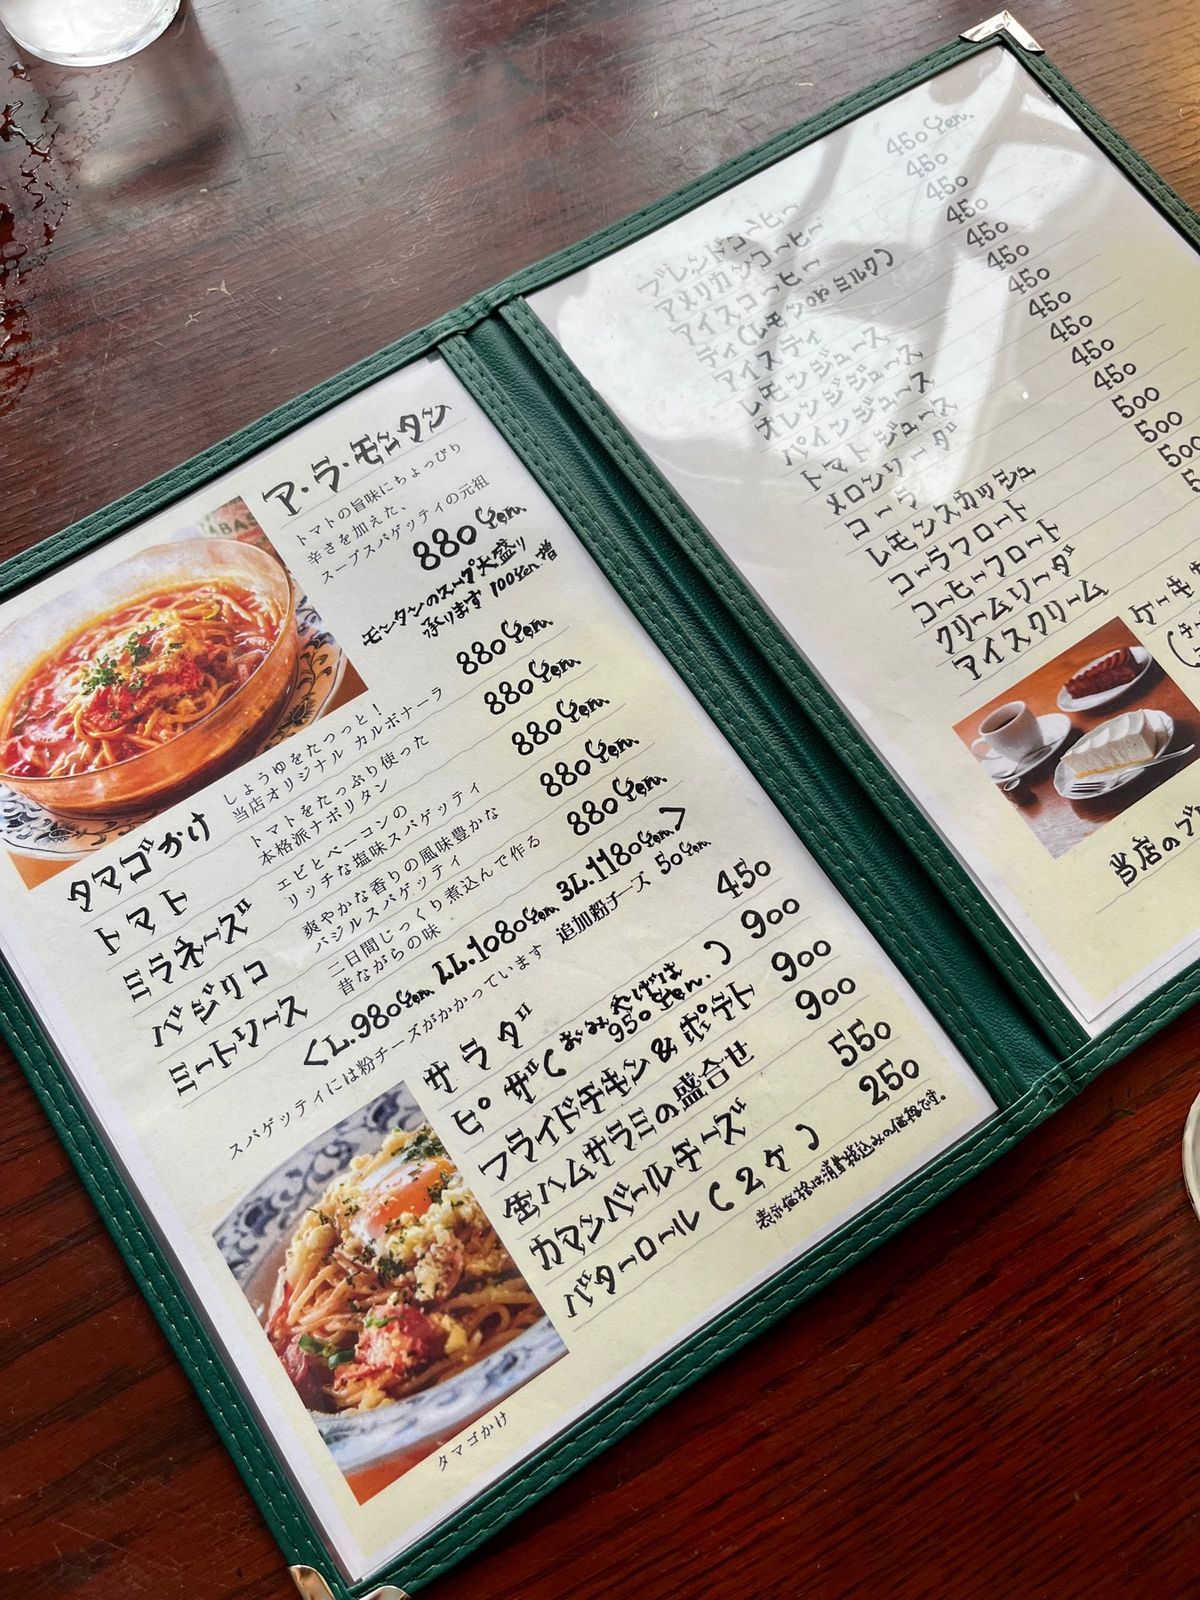 ア・ラ・モンタン
トマトの旨味にちょっぴり
辛さを加えた、
スープスパゲッティの元祖
880 Yen.
モンタンのスープ大盛り
承ります 100Yen.増
タマゴかけ しょうゆをたっっと！ 880 Yen.
当店オリジナル カルボナーラ
トマト トマトをたっぷり使った 880 Yen.
本格派ナポリタン
ミラネーズ エビとベーコンの 880 Yen.
リッチな塩味スパゲッティ
バジリコ 爽やかな香りの風味豊かな 880 Yen.
バジルスパゲッティ
ミートソース 二日間じっくり煮込んで作る 880 Yen.
昔ながらの味
<L.980Yen. LL.1080Yen. 3L.1180Yen.>
スパゲッティには粉チーズがかかっています 追加粉チーズ 50Yen.
サラダ 450
ピザ(おみやげは 950Yen.) 900
フライドチキン&ポテト 900
生ハムサラミの盛合せ 900
カマンベールチーズ 550
バターロール(2ケ) 250
表示価格は消費税込みの価格です。
タマゴかけ
ブレンドコーヒー 450 Yen.
アメリカンコーヒー 450
アイスコーヒー 450
ティ(レモン or ミルク) 450
アイスティ 450
レモンジュース 450
オレンジジュース 450
パインジュース 450
トマトジュース 450
メロンソーダ 450
コーラ 450
レモンスカッシュ 500
コーラフロート 500
コーヒーフロート 500
クリームソーダ
アイスクリーム
ケーキ
当店のブ